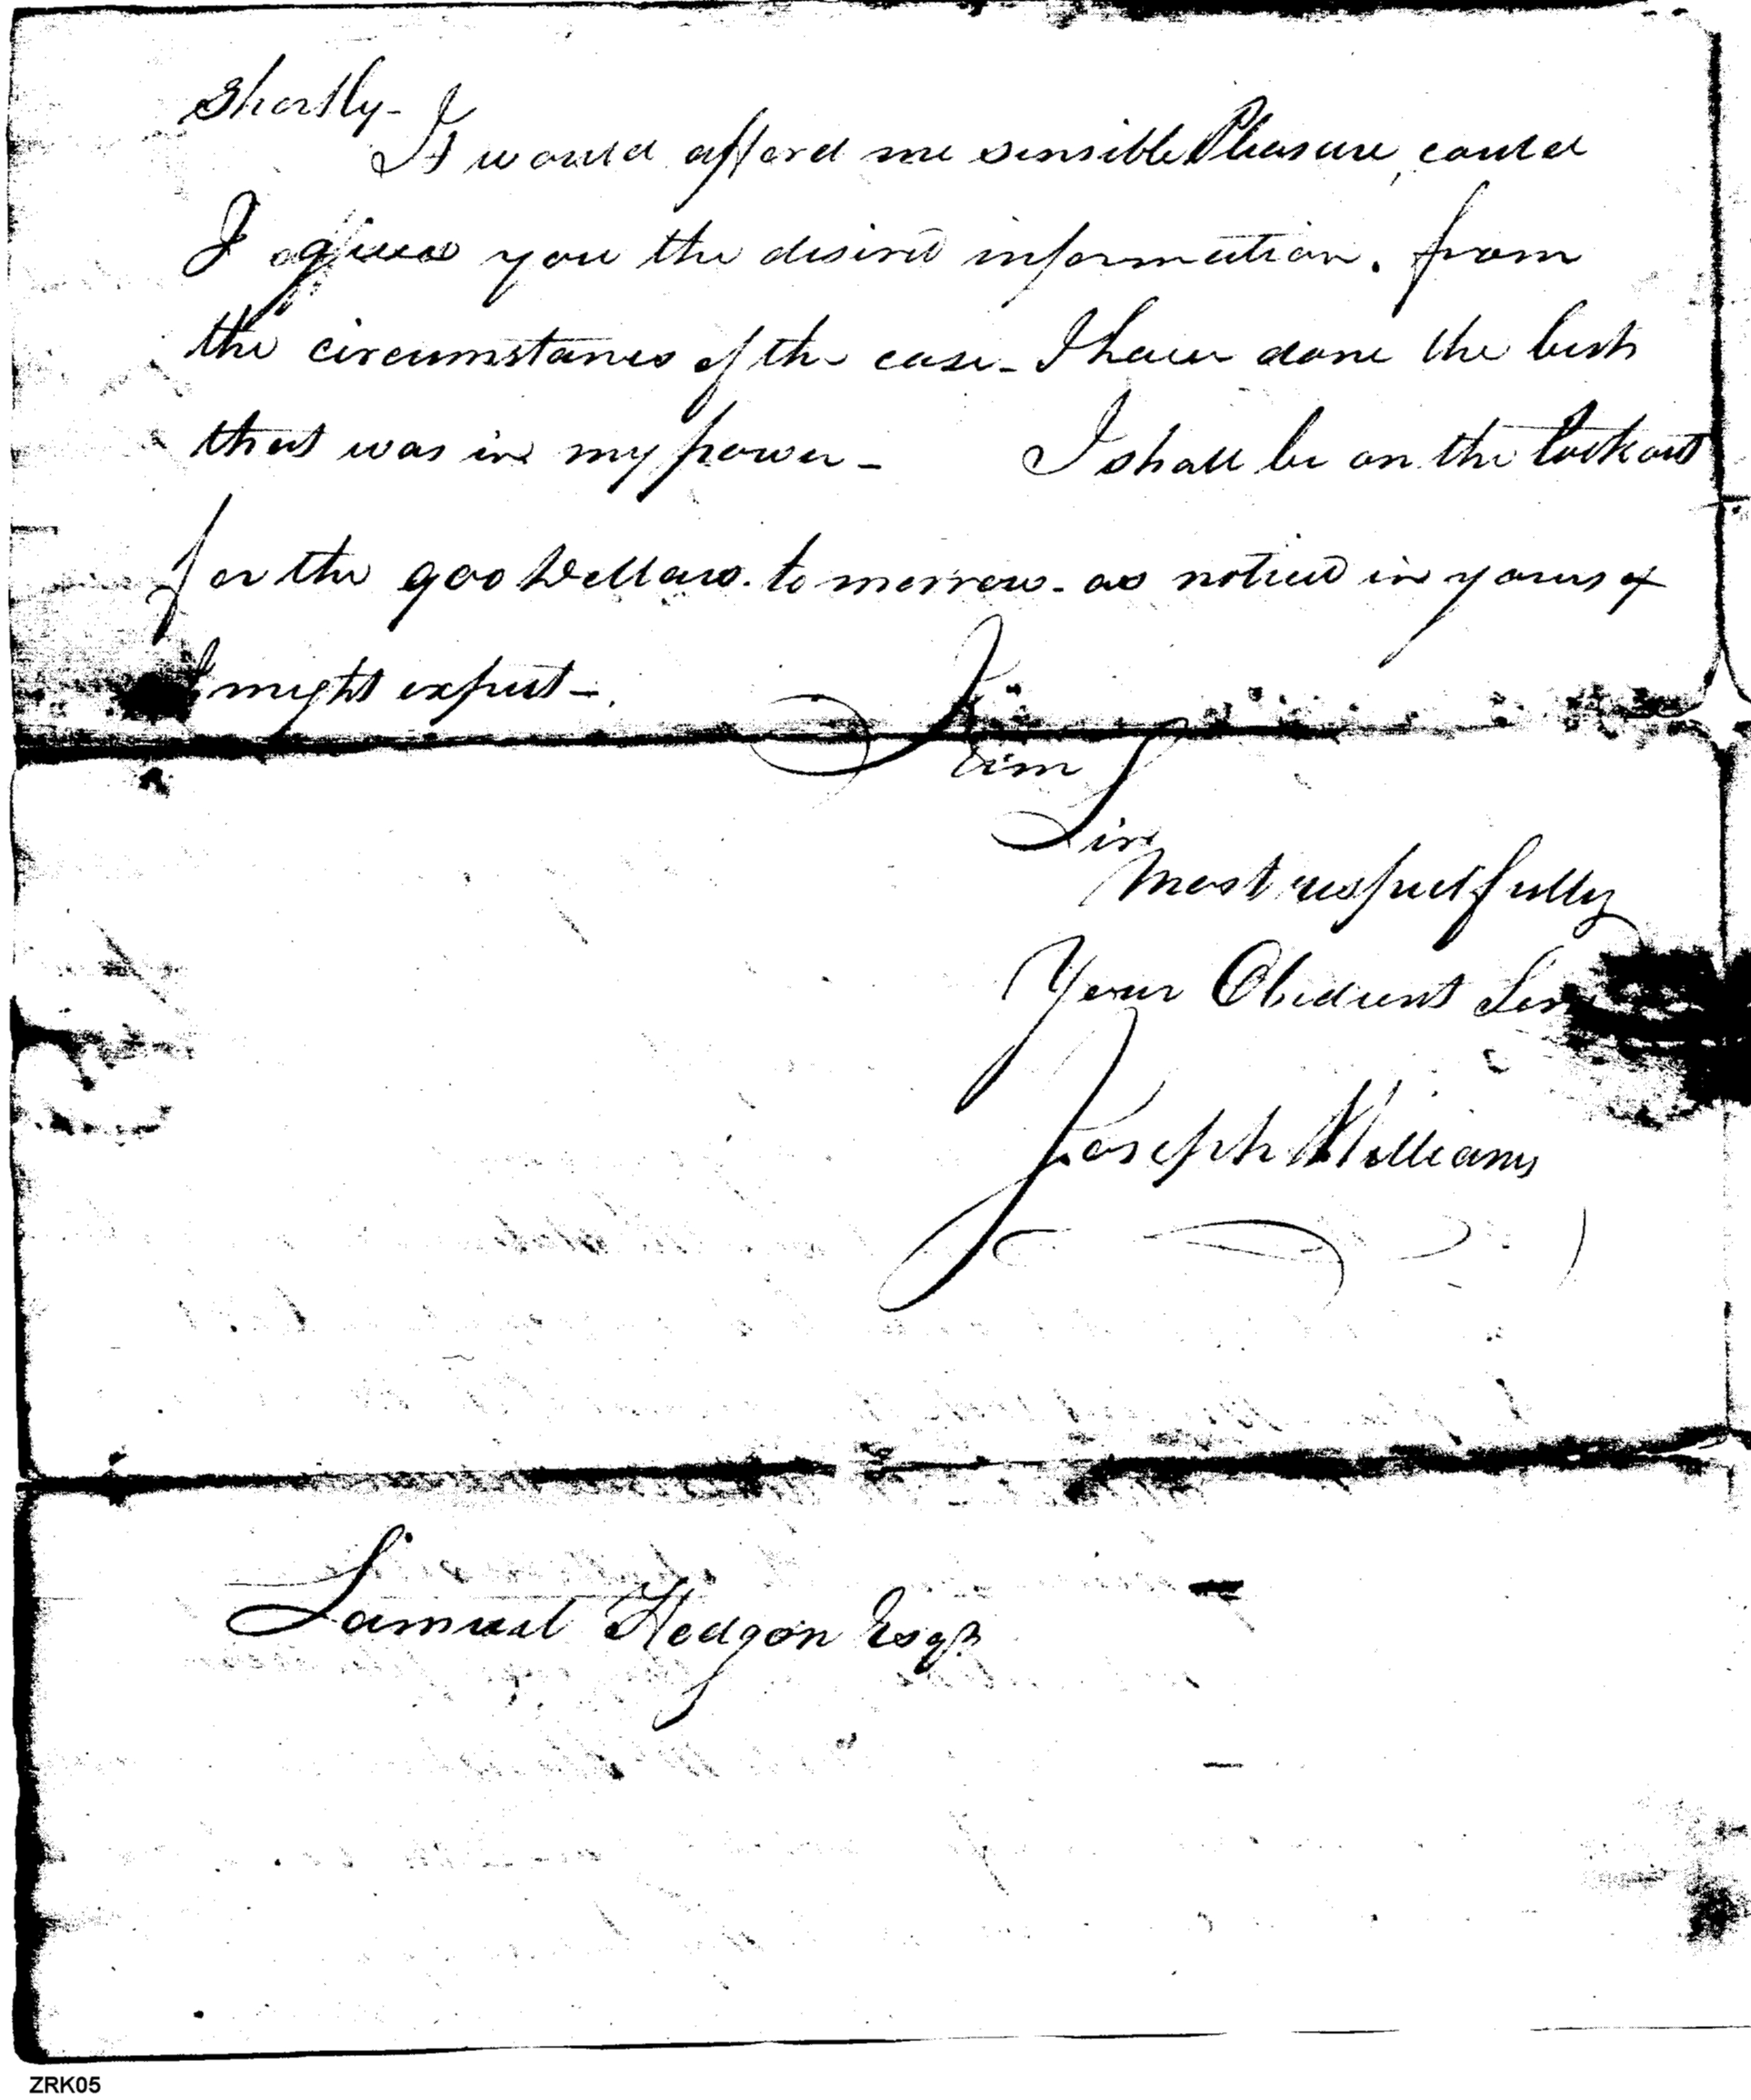 Shortly-
It would afford me sensible Pleasure, could
I give you the desired information. from
the circumstances of the case- I have done the best
that was in my power- I shall be on the lookout
for the 900 Dollars. to morrow- as noticed in yours of
I might expect-.
I am
Sir
Most respectfully
Your Obedient
Joseph Williams
Samuel Hodgon Esqr
ZRK05